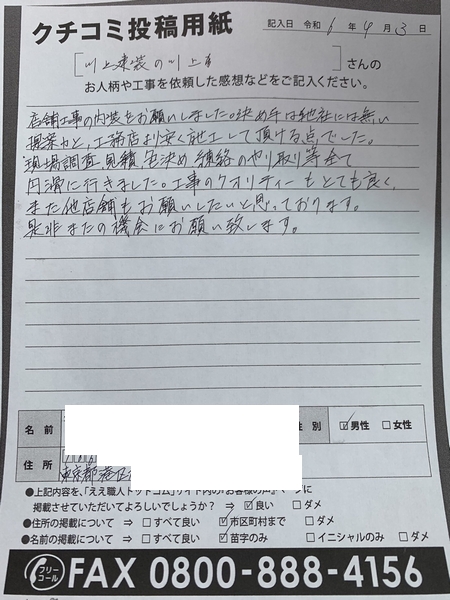 クチコミ投稿用紙
記入日 令和 6 年 4 月 3 日
[川上建装の川上 ]さんの
お人柄や工事を依頼した感想などをご記入ください。
店舗工事の内装をお願いしました。決め手は他社には無い
提案力と、工務店より安く施工して頂ける点でした。
現場調査、見積、色決め、連絡のやり取り等全て
円滑に行きました。工事のクオリティーもとても良く、
また他店舗もお願いしたいと思っております。
是非またの機会にお願い致します。
名前
性別 ☑男性 □女性
住所
東京都港区
●上記内容を、「ええ職人ドットコム」サイト内の「お客様の声」ページに
掲載させていただいてよろしいでしょうか? ⇒ ☑良い □ダメ
●住所の掲載について ⇒ □すべて良い ☑市区町村まで □ダメ
●名前の掲載について ⇒ □すべて良い ☑苗字のみ □イニシャルのみ □ダメ
フリーコール FAX 0800-888-4156